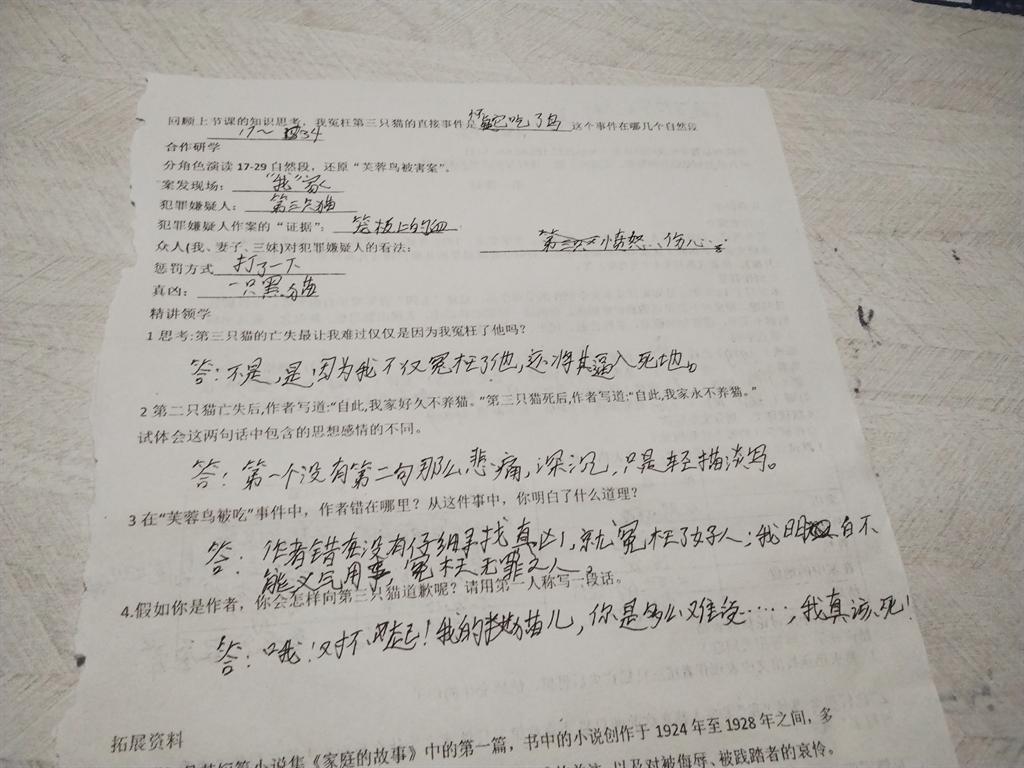 回顾上节课的知识思考，我冤枉第三只猫的直接事件是 它吃了鸟 这个事件在哪几个自然段
17～34
合作研学
分角色演读 17-29 自然段，还原“芙蓉鸟被害案”。
案发现场：“我”家
犯罪嫌疑人：第三只猫
犯罪嫌疑人作案的“证据”：笼板上的血
众人(我、妻子、三妹)对犯罪嫌疑人的看法：愤怒、伤心
惩罚方式 打了一下
真凶：一只黑猫
精讲领学
1 思考:第三只猫的亡失最让我难过仅仅是因为我冤枉了他吗？
答：不是，是因为我不仅冤枉了他，还将其逼入死地。
2 第二只猫亡失后,作者写道:“自此,我家好久不养猫。”第三只猫死后,作者写道:“自此,我家永不养猫。”
试体会这两句话中包含的思想感情的不同。
答：第一个没有第二句那么悲痛，深沉，只是轻描淡写。
3 在“芙蓉鸟被吃”事件中，作者错在哪里？从这件事中，你明白了什么道理？
答：作者错在没有仔细寻找真凶，就冤枉了好人；我明白不
能义气用事，冤枉无罪之人。
4.假如你是作者，你会怎样向第三只猫道歉呢？请用第一人称写一段话。
答：哦！对不起！我的猫儿，你是多么难受……，我真该死！
拓展资料
短篇小说集《家庭的故事》中的第一篇，书中的小说创作于 1924 年至 1928 年之间，多
以及对被侮辱、被践踏者的哀怜。